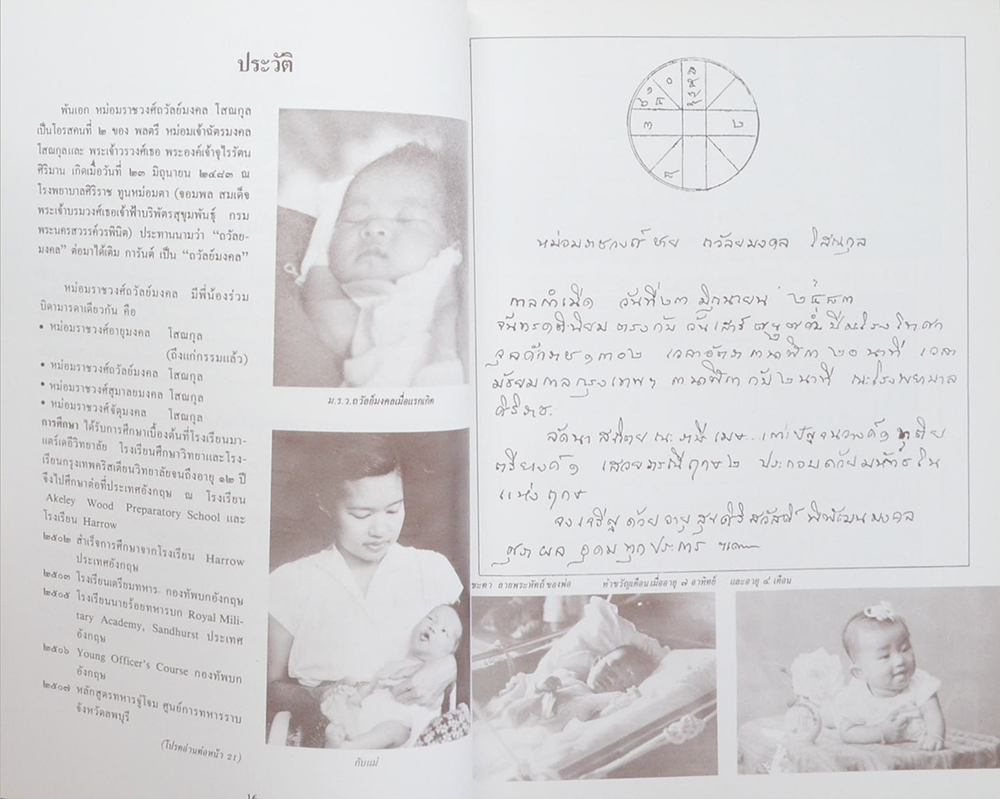 ประวัติ
พันเอก หม่อมราชวงศ์ถวัลย์มงคล โสณกุล
เป็นโอรสคนที่ ๒ ของ พลตรี หม่อมเจ้าฉัตรมงคล
โสณกุลและ พระเจ้าวรวงศ์เธอ พระองค์เจ้าจุไรรัตน
ศิริมาน เกิดเมื่อวันที่ ๒๓ มิถุนายน ๒๔๘๓ ณ
โรงพยาบาลศิริราช ทูนหม่อมตา (จอมพล สมเด็จ
พระเจ้าบรมวงศ์เธอเจ้าฟ้าบริพัตรสุขุมพันธุ์ กรม
พระนครสวรรค์วรพินิต) ประทานนามว่า “ถวัลย-
มงคล” ต่อมาได้เติม การันต์ เป็น “ถวัลย์มงคล”
หม่อมราชวงศ์ถวัลย์มงคล มีพี่น้องร่วม
บิดามารดาเดียวกัน คือ
• หม่อมราชวงศ์อายุมงคล โสณกุล
(ถึงแก่กรรมแล้ว)
• หม่อมราชวงศ์ถวัลย์มงคล โสณกุล
• หม่อมราชวงศ์สุมาลยมงคล โสณกุล
• หม่อมราชวงศ์จัตุมงคล โสณกุล
การศึกษา ได้รับการศึกษาเบื้องต้นที่โรงเรียนมา-
แตร์เดอีวิทยาลัย โรงเรียนศึกษาวิทยาและโรง-
เรียนกรุงเทพคริสเตียนวิทยาลัยจนถึงอายุ ๑๒ ปี
จึงไปศึกษาต่อที่ประเทศอังกฤษ ณ โรงเรียน
Akeley Wood Preparatory School และ
โรงเรียน Harrow
๒๕๐๒ สำเร็จการศึกษาจากโรงเรียน Harrow
ประเทศอังกฤษ
๒๕๐๓ โรงเรียนเตรียมทหาร กองทัพบกอังกฤษ
๒๕๐๕ โรงเรียนนายร้อยทหารบก Royal Mili-
tary Academy, Sandhurst ประเทศ
อังกฤษ
๒๕๐๖ Young Officer's Course กองทัพบก
อังกฤษ
๒๕๐๗ หลักสูตรทหารจู่โจม ศูนย์การทหารราบ
จังหวัดลพบุรี
(โปรดอ่านต่อหน้า 21)
16
ม.ร.ว.ถวัลย์มงคลเมื่อแรกเกิด
กับแม่
๓
๒
หม่อมราชวงศ์ ชาย ถวัลยมงคล โสณกุล
กาลกำเนิด วันที่ ๒๓ มิถุนายน ๒๔๘๓
จันทรคตินิยม ตรงกับ วันเสาร์ ปีมะโรง โทศก
จุลศักราช ๑๓๐๒ เวลา นาฬิกา ๒๐ นาที เวลา
มัธยมกาลกรุงเทพฯ นาฬิกา กับ ๒ นาที ณะโรงพยาบาล
ศิริราช
ลัคนา สถิตย ณะ ราศี เมษ
ตรียางค์ ๑ เสวยภรณีฤกษ ๒ ประกอบด้วย
แห่ง ฤกษ
จงเจริญด้วยอายุ สุข ศิริสวัสดิ์ พิพัฒนมงคล
ศุภผล อุดม ทุกประการ
ชะตา ลายพระหัตถ์ของพ่อ ทำขวัญเดือน เมื่ออายุ ๗ อาทิตย์ และอายุ ๔ เดือน